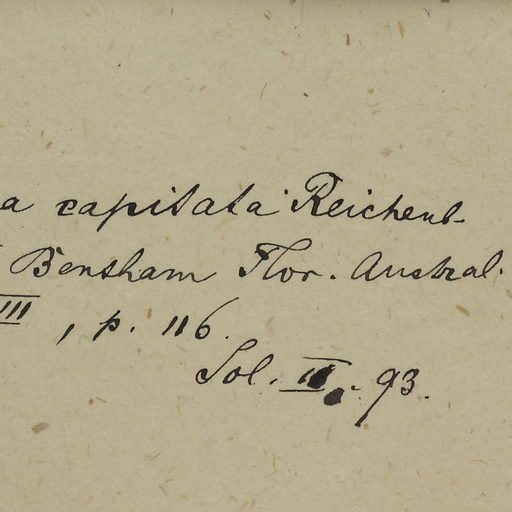 a capitata Reichenb.
Bentham Flor. Austral.
III, p. 116.
Sol. II. 93.